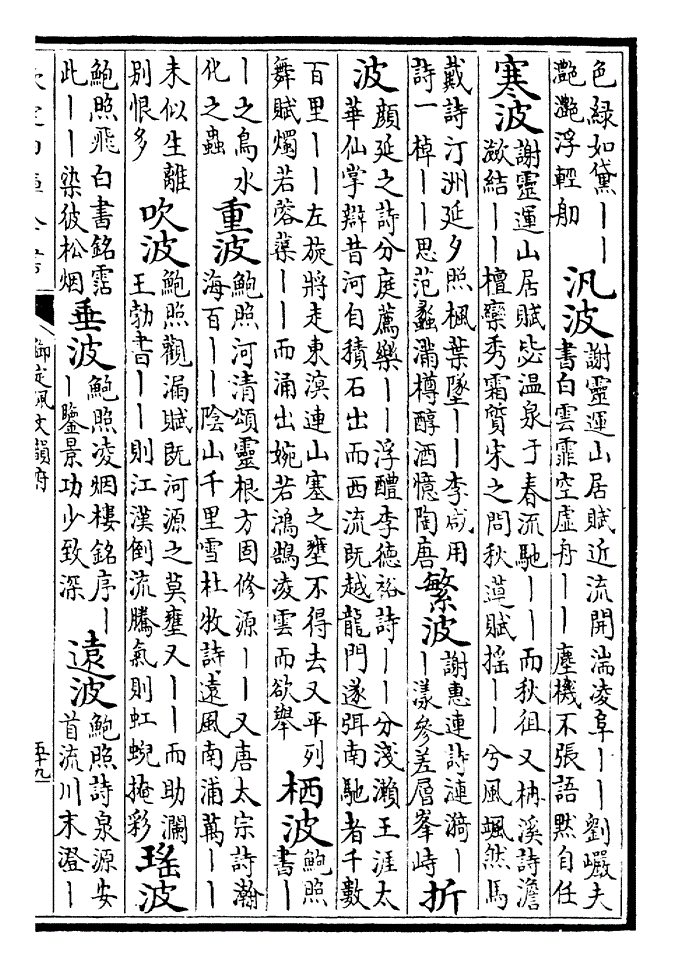 色緑如黛〡〡
灧灧浮輕舠
汎波
謝靈運山居賦近流開湍凌阜〡〡劉巖夫
書白雲霏空虚舟〡〡塵機不張語黙自任
寒波
謝靈運山居賦毖温泉于春流馳〡〡而秋徂又栴溪詩澹
潋結〡〡檀欒秀霜質宋之問秋蓮賦揺〡〡兮風颯然馬
戴詩汀洲延夕照楓葉墜〡〡李咸用
詩一棹〡〡思范蠡滿樽醇酒憶陶唐
繁波
謝惠連詩漣漪〡
〡漾參差層峯峙
折
波
顔延之詩分庭薦樂〡〡浮醴李德裕詩〡〡分淺瀨王涯太
華仙掌辯昔河自積石出而西流既越龍門遂弭南馳者千數
百里〡〡左旋將走東溟連山塞之壅不得去又平列
舞賦燭若蓉蕖〡〡而涌出婉若鴻鵠凌雲而欲舉
栖波
鮑照
書〡
〡之鳥水
化之蟲
重波
鮑照河清頌靈根方固修源〡〡又唐太宗詩瀚
海百〡〡陰山千里雪杜牧詩遠風南浦萬〡〡
未似生離
别恨多
吹波
鮑照觀漏賦既河源之莫壅又〡〡而助瀾
王勃書〡〡則江漢倒流騰氣則虹蜺掩彩
瑤波
鮑照飛白書銘霑
此〡〡染彼松烟
垂波
鮑照凌烟樓銘序〡
〡鑒景功少致深
遠波
鮑照詩泉源安
首流川末澄〡
欽定四庫全書
御定佩文韻府
五十九